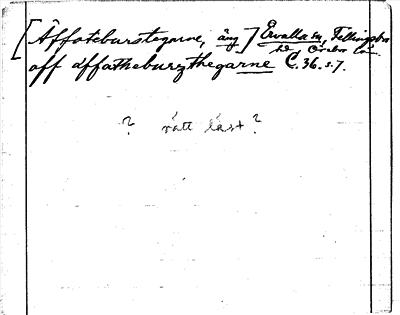 [Äffateburstegarne, äng] Ervalla sn, Fellingsbro
hd Örebro län.
off äffatheburzthegarne C. 36. s. 7.
? rätt läst?